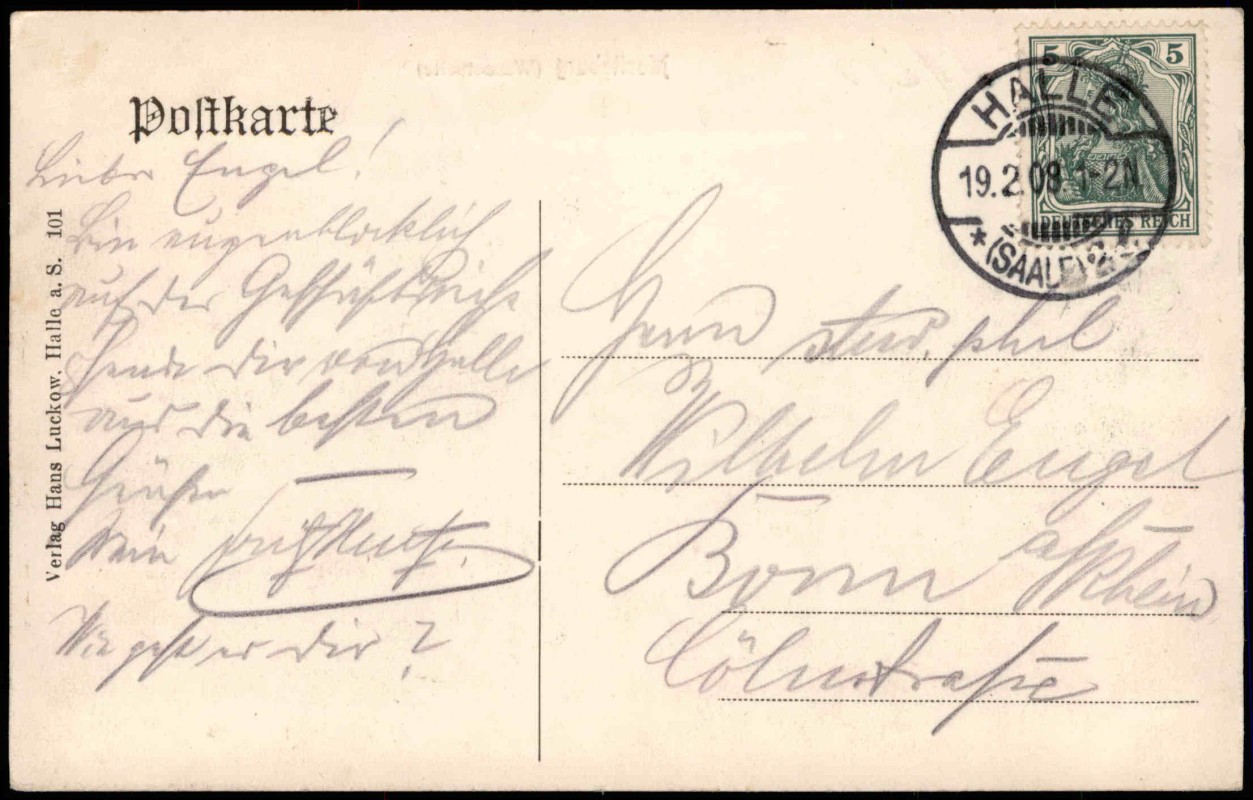 Postkarte
Lieber Engel!
Bin augenblicklich
auf der Geschäftsreise
sende dir von Halle
aus die besten
Grüße
Dein
Wie geht es dir?
Verlag Hans Luckow, Halle a. S. 101
5 5
DEUTSCHES REICH
HALLE
19.2.09. 1-2N.
* (SAALE) *2
Herrn stud. phil
Wilhelm Engel
Bonn a/Rhein
Cölnstraße